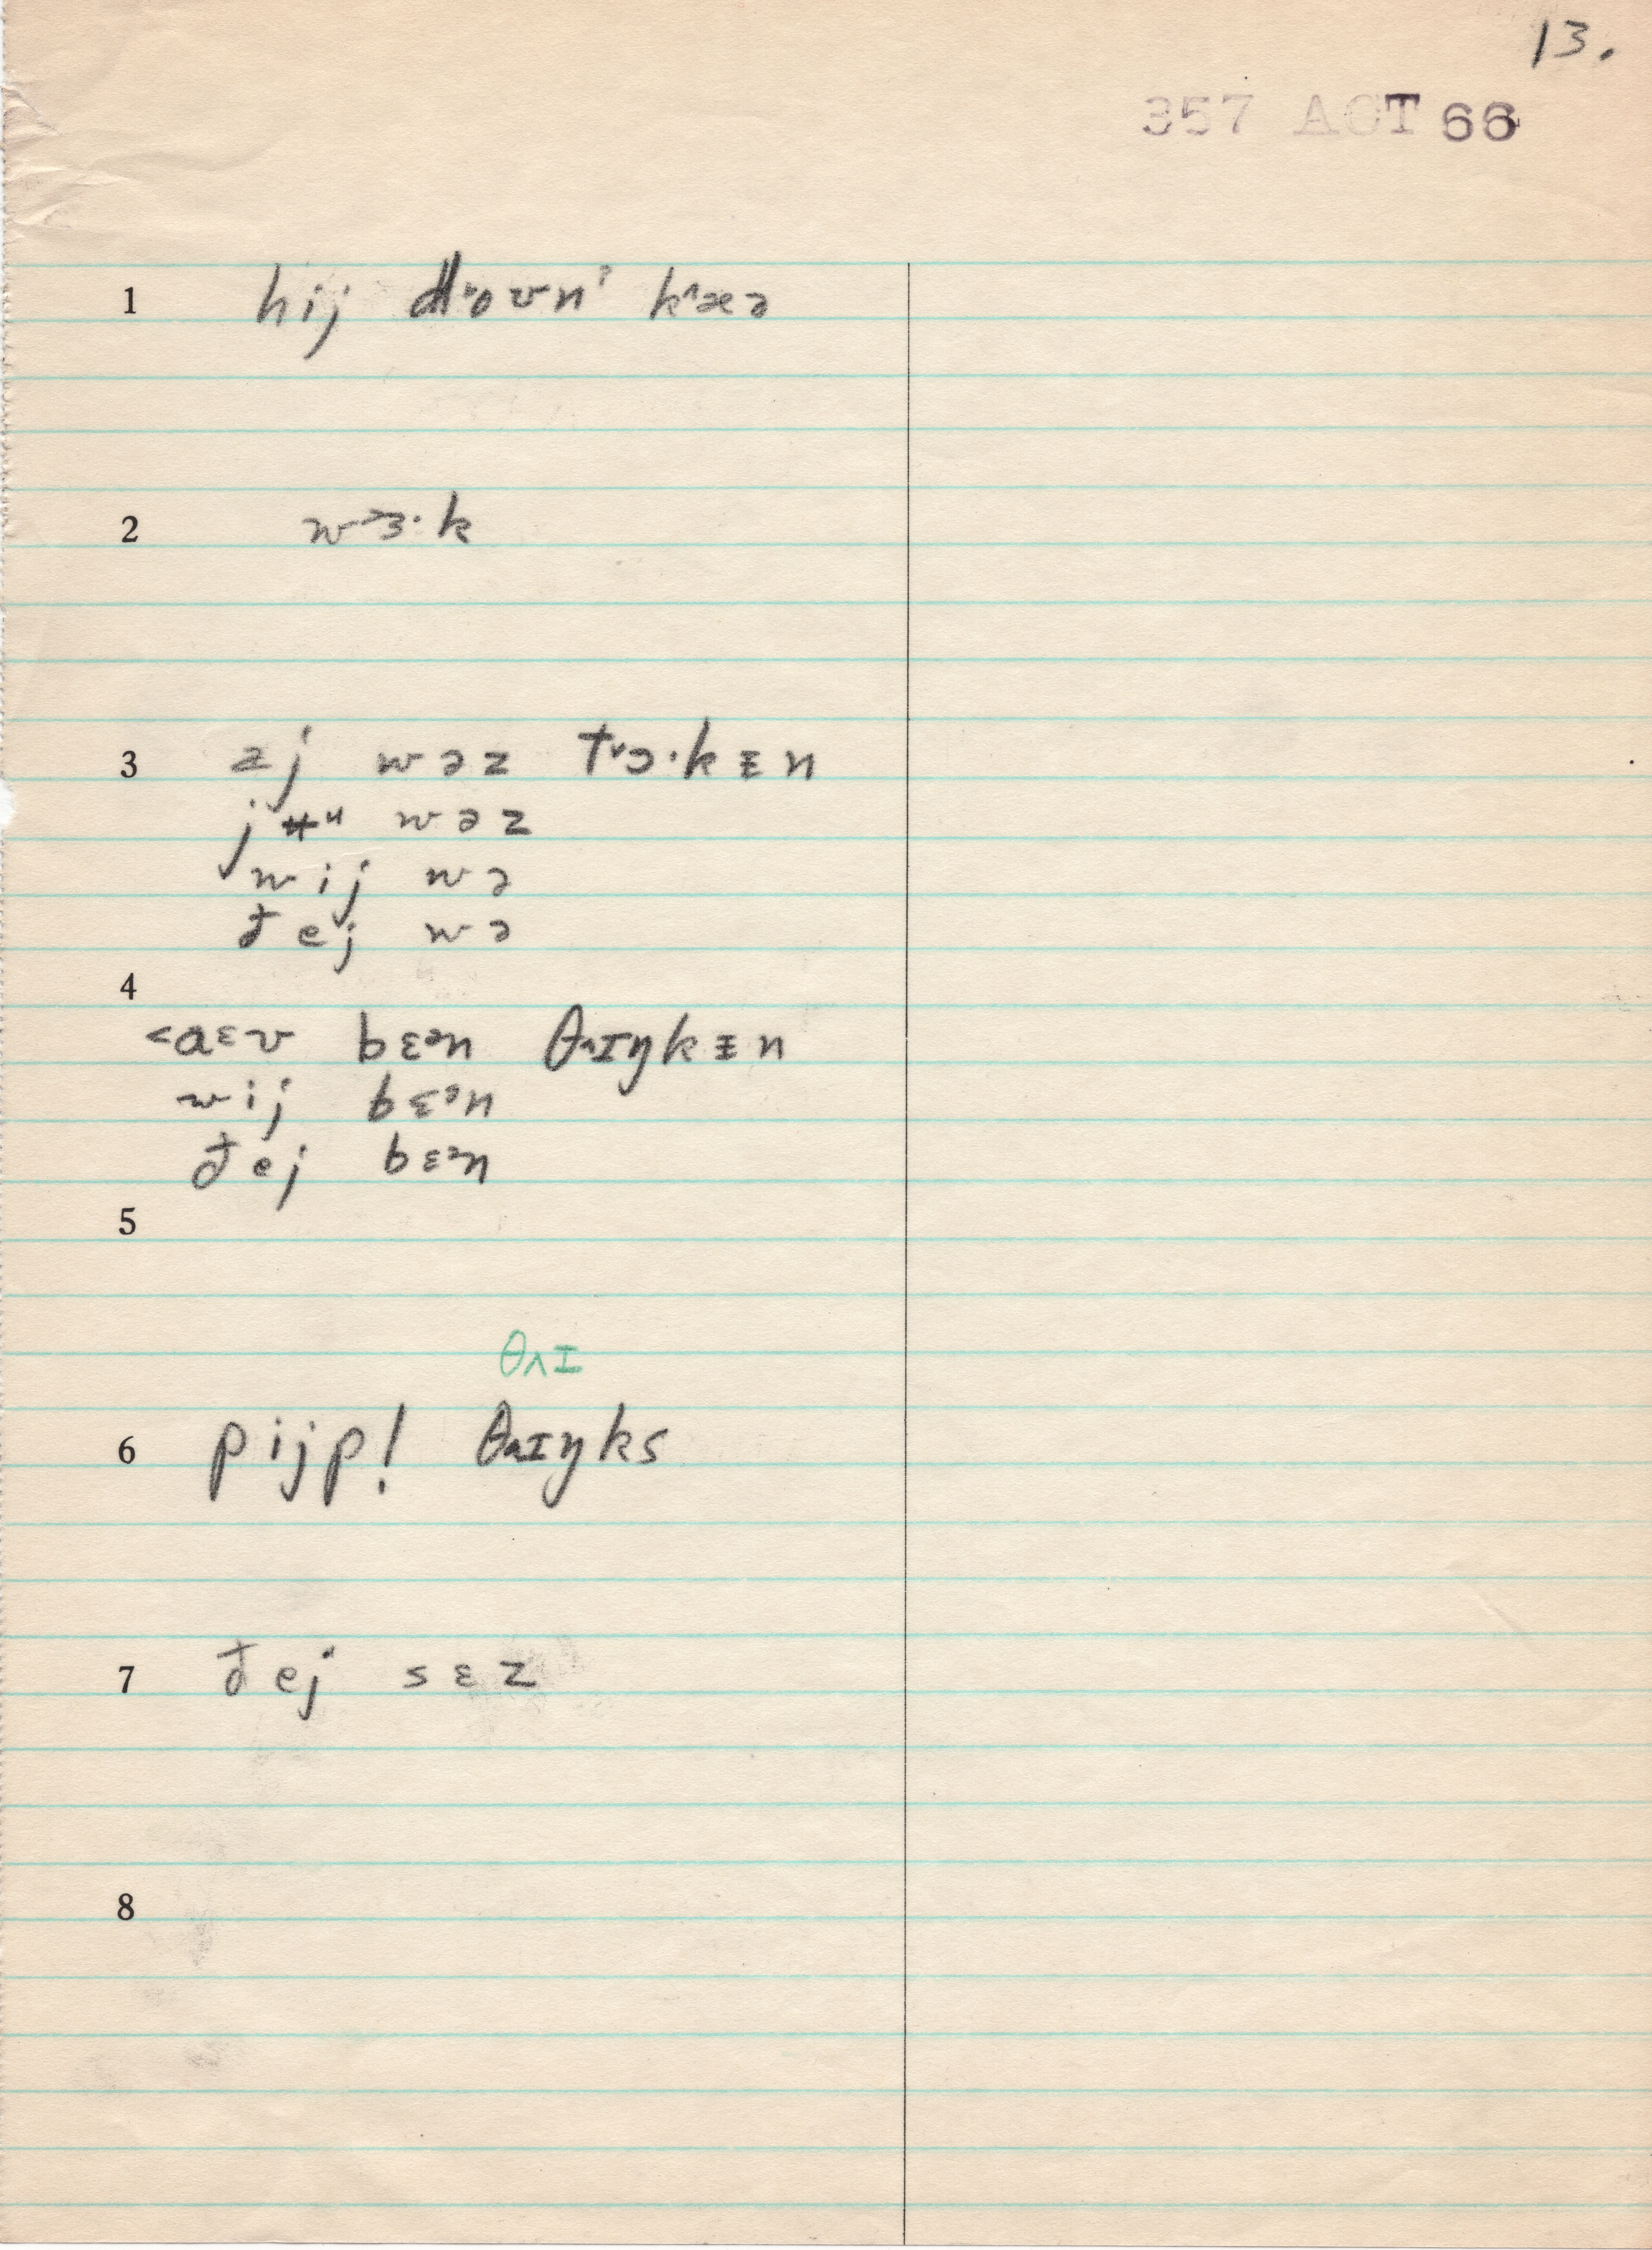 13.
357 ACT 66
1 hij dˠoʊnˀ kˆæə
2 wɜ·k
3 əj wəz tˠɔ·kᵻn
jʉᵘ wəz
wij wə
ðej wə
4
<aɛv bɛᵊn θʌɪŋkᵻn
wij bɛᵊn
ðej bɛᵊn
5
θʌɪ
6 pijp! θʌɪŋks
7 ðej sɛz
8